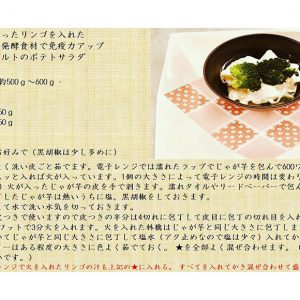 ったリンゴを入れた
発酵食材で免疫力アップ
ルトのポテトサラダ
約500g～600g
50g
50g
好みで（黒胡椒は少し多めに）
く洗い皮ごと茹でます。電子レンジでは濡れたラップでじゃが芋を包んで600ワ
っと入れれば火が入っています。1個の大きさによって電子レンジの時間は変わり
火が入ったじゃが芋の皮を手で剥きます。濡れタオルやリードペーパーで包んで
したじゃが芋は熱いうちに塩、黒胡椒をしておきます。
って水で洗い水気を切っておきます。
つきで使いますので皮つきの半分は4切れに包丁して皮目に包丁の切れ目を入れ
フットで3分火を入れます。火を入れた林檎はじゃが芋と同じ大きさに包丁し
てじゃが芋と同じ大きさに包丁して塩水（アク止めなので塩は少々）入れておき
ーはある程度の大きさに色よく茹でておく。★を全部よく混ぜ合わせます。
ンジで火を入れたリンゴの汁も上記の★に入れる。 すべてを入れてかき混ぜ合わせ盛